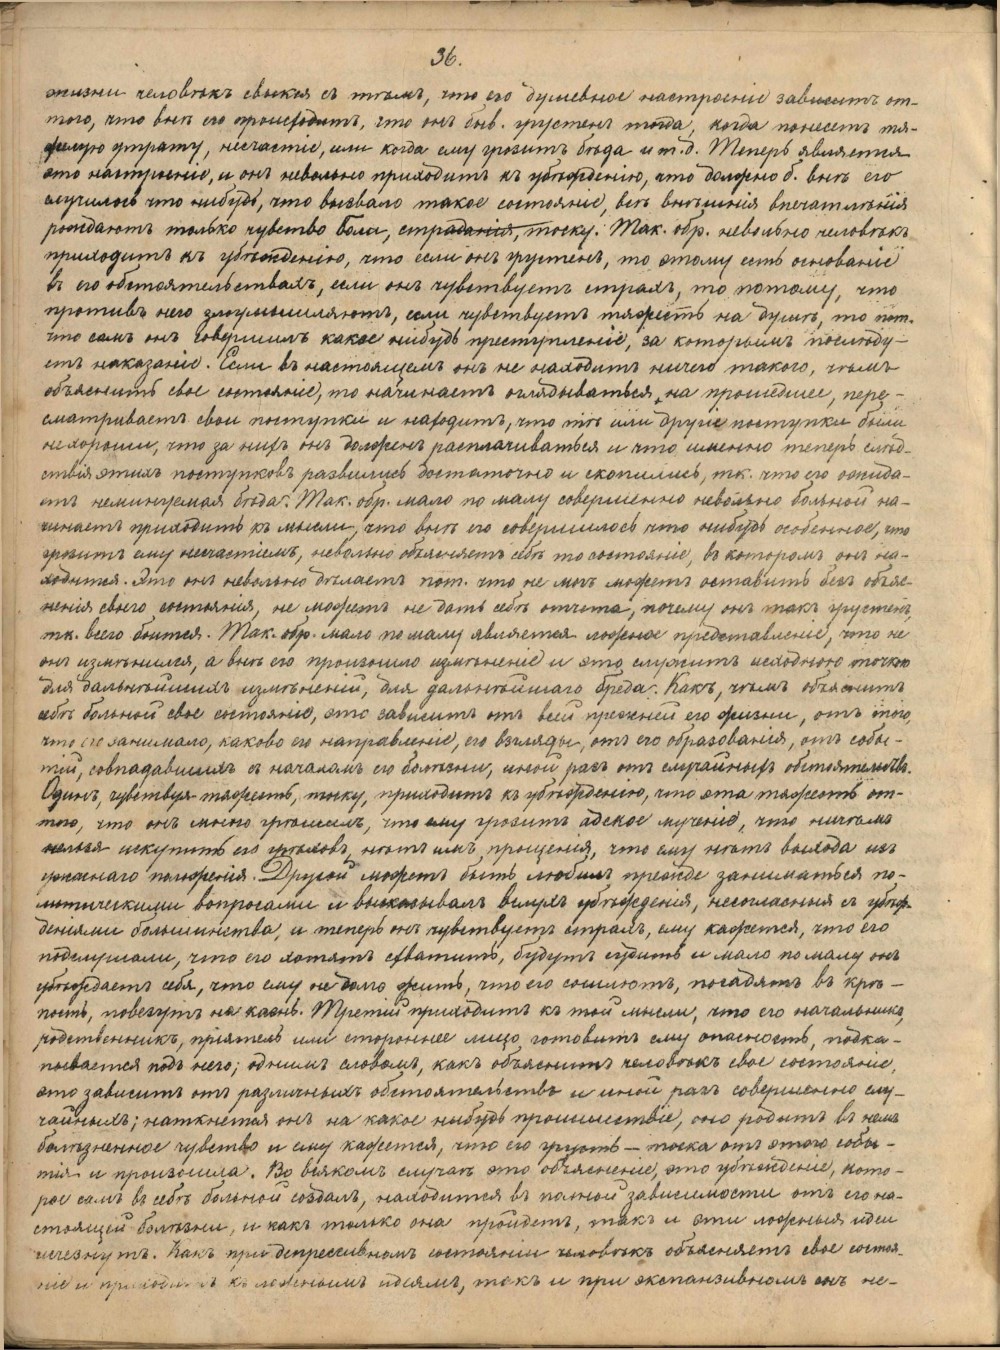 36.
жизни человѣкъ свыкся съ тѣмъ, что его душевное настроеніе зависитъ от-
того, что внѣ его происходитъ, что онъ быв. грустенъ тогда, когда понесетъ тя-
желую утрату, несчастіе, или когда ему грозитъ бѣда и т.д. Теперь является
это настроеніе, и онъ невольно приходитъ къ убѣжденію, что должно б. внѣ его
случилось что нибудь, что вызвало такое состояніе, всѣ внѣшнія впечатлѣнія
рождаютъ только чувство боли, страданія, тоску. Так. обр. невольно человѣкъ
приходитъ къ убѣжденію, что если онъ грустенъ, то этому есть основаніе
въ его обстоятельствахъ, если онъ чувствуетъ страхъ, то потому, что
противъ него злоумышляютъ, если чувствуетъ тяжесть на душѣ, то пот.
что самъ онъ совершилъ какое нибудь преступленіе, за которымъ послѣду-
етъ наказаніе. Если въ настоящемъ онъ не находитъ ничего такого, чѣмъ
объяснить свое состояніе, то начинаетъ оглядываться на прошедшее, пере-
сматриваетъ свои поступки и находитъ, что тѣ или другіе поступки были
нехороши, что за нихъ онъ долженъ расплачиваться и что именно теперь слѣд-
ствія этихъ поступковъ развились достаточно и скопились, тк. что его ожида-
етъ неминуемая бѣда. Так. обр. мало по малу совершенно невольно больной на-
чинаетъ приходить къ мысли, что внѣ его совершилось что нибудь особенное, что
грозитъ ему несчастіемъ, невольно объясняетъ себѣ то состояніе, въ которомъ онъ на-
ходится. Это онъ невольно дѣлаетъ пот. что не можетъ оставить безъ объяс-
ненія своего состоянія, не можетъ не дать себѣ отчета, почему онъ такъ грустенъ,
тк. всего боится. Так. обр. мало по малу является ложное представленіе, что не
онъ измѣнился, а внѣ его произошло измѣненіе и это служитъ исходною точкою
для дальнѣйшихъ измѣненій, для дальнѣйшаго бреда. Какъ, чѣмъ объяснитъ
себѣ больной свое состояніе, это зависитъ отъ всей прежней его жизни, отъ того,
что его занимало, каково его направленіе, его взгляды, отъ его образованія, отъ собы-
тій, совпадавшихъ съ началомъ его болѣзни, иной разъ отъ случайныхъ обстоятельствъ.
Одинъ, чувствуя тяжесть, тоску, приходитъ къ убѣжденію, что эта тяжесть от-
того, что онъ много грѣшилъ, что ему грозитъ адское мученіе, что ничѣмъ
нельзя искупить его грѣховъ, нѣтъ имъ прощенія, что ему нѣтъ выхода изъ
ужаснаго положенія. Другой можетъ быть любилъ прежде заниматься по-
литическими вопросами и высказывалъ вслухъ убѣжденія, несогласныя съ убѣж-
деніями большинства, и теперь онъ чувствуетъ страхъ, ему кажется, что его
подслушали, что его хотятъ схватить, будутъ судить и мало по малу онъ
убѣждаетъ себя, что ему не долго жить, что его сошлютъ, посадятъ въ крѣ-
пость, повезутъ на казнь. Третій приходитъ къ той мысли, что его начальникъ,
родственникъ, пріятель или стороннее лицо готовитъ ему опасность, подка-
пывается подъ него; однимъ словомъ, какъ объяснитъ человѣкъ свое состояніе,
это зависитъ отъ различныхъ обстоятельствъ и иной разъ совершенно слу-
чайныхъ; наткнется онъ на какое нибудь происшествіе, оно родитъ въ немъ
болѣзненное чувство и ему кажется, что его грусть — тоска отъ этого собы-
тія и произошла. Во всякомъ случаѣ это объясненіе, это убѣжденіе, кото-
рое самъ въ себѣ больной создалъ, находится въ полной зависимости отъ его на-
стоящей болѣзни, и какъ только она пройдетъ, такъ и эти ложныя идеи
исчезнутъ. Какъ при депрессивномъ состояніи человѣкъ объясняетъ свое состоя-
ніе и приходитъ къ ложнымъ идеямъ, такъ и при экспансивномъ онъ не-